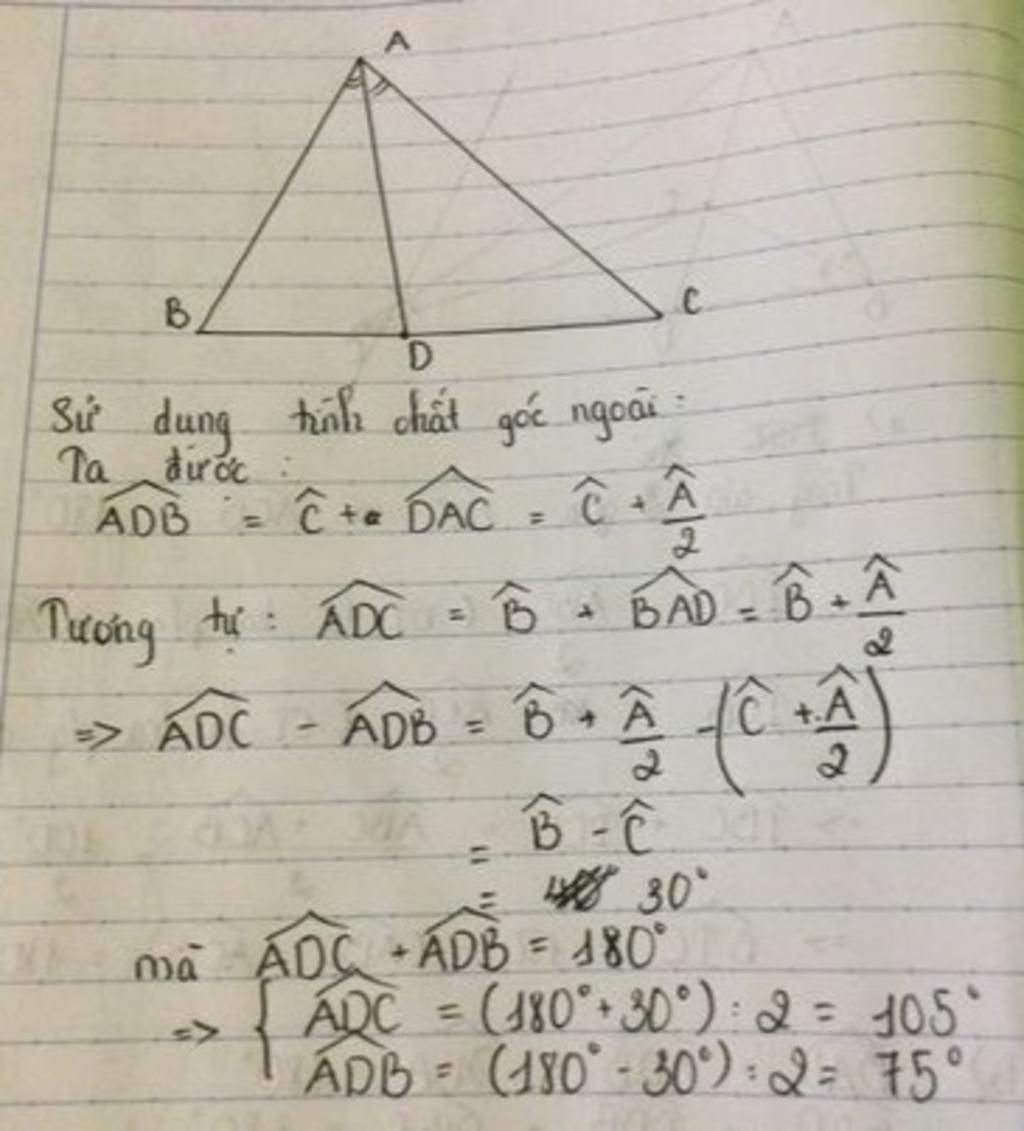 A
B
C
D
Sử dung tính chất góc ngoài:
Ta được:
$\widehat{ADB} = \widehat{C} + \widehat{DAC} = \widehat{C} + \frac{\widehat{A}}{2}$
Tương tự: $\widehat{ADC} = \widehat{B} + \widehat{BAD} = \widehat{B} + \frac{\widehat{A}}{2}$
=> $\widehat{ADC} - \widehat{ADB} = \widehat{B} + \frac{\widehat{A}}{2} - \left(\widehat{C} + \frac{\widehat{A}}{2}\right)$
$= \widehat{B} - \widehat{C}$
= 30°
mà $\widehat{ADC} + \widehat{ADB} = 180°$
=> { $\widehat{ADC} = (180° + 30°) : 2 = 105°$
$\widehat{ADB} = (180° - 30°) : 2 = 75°$